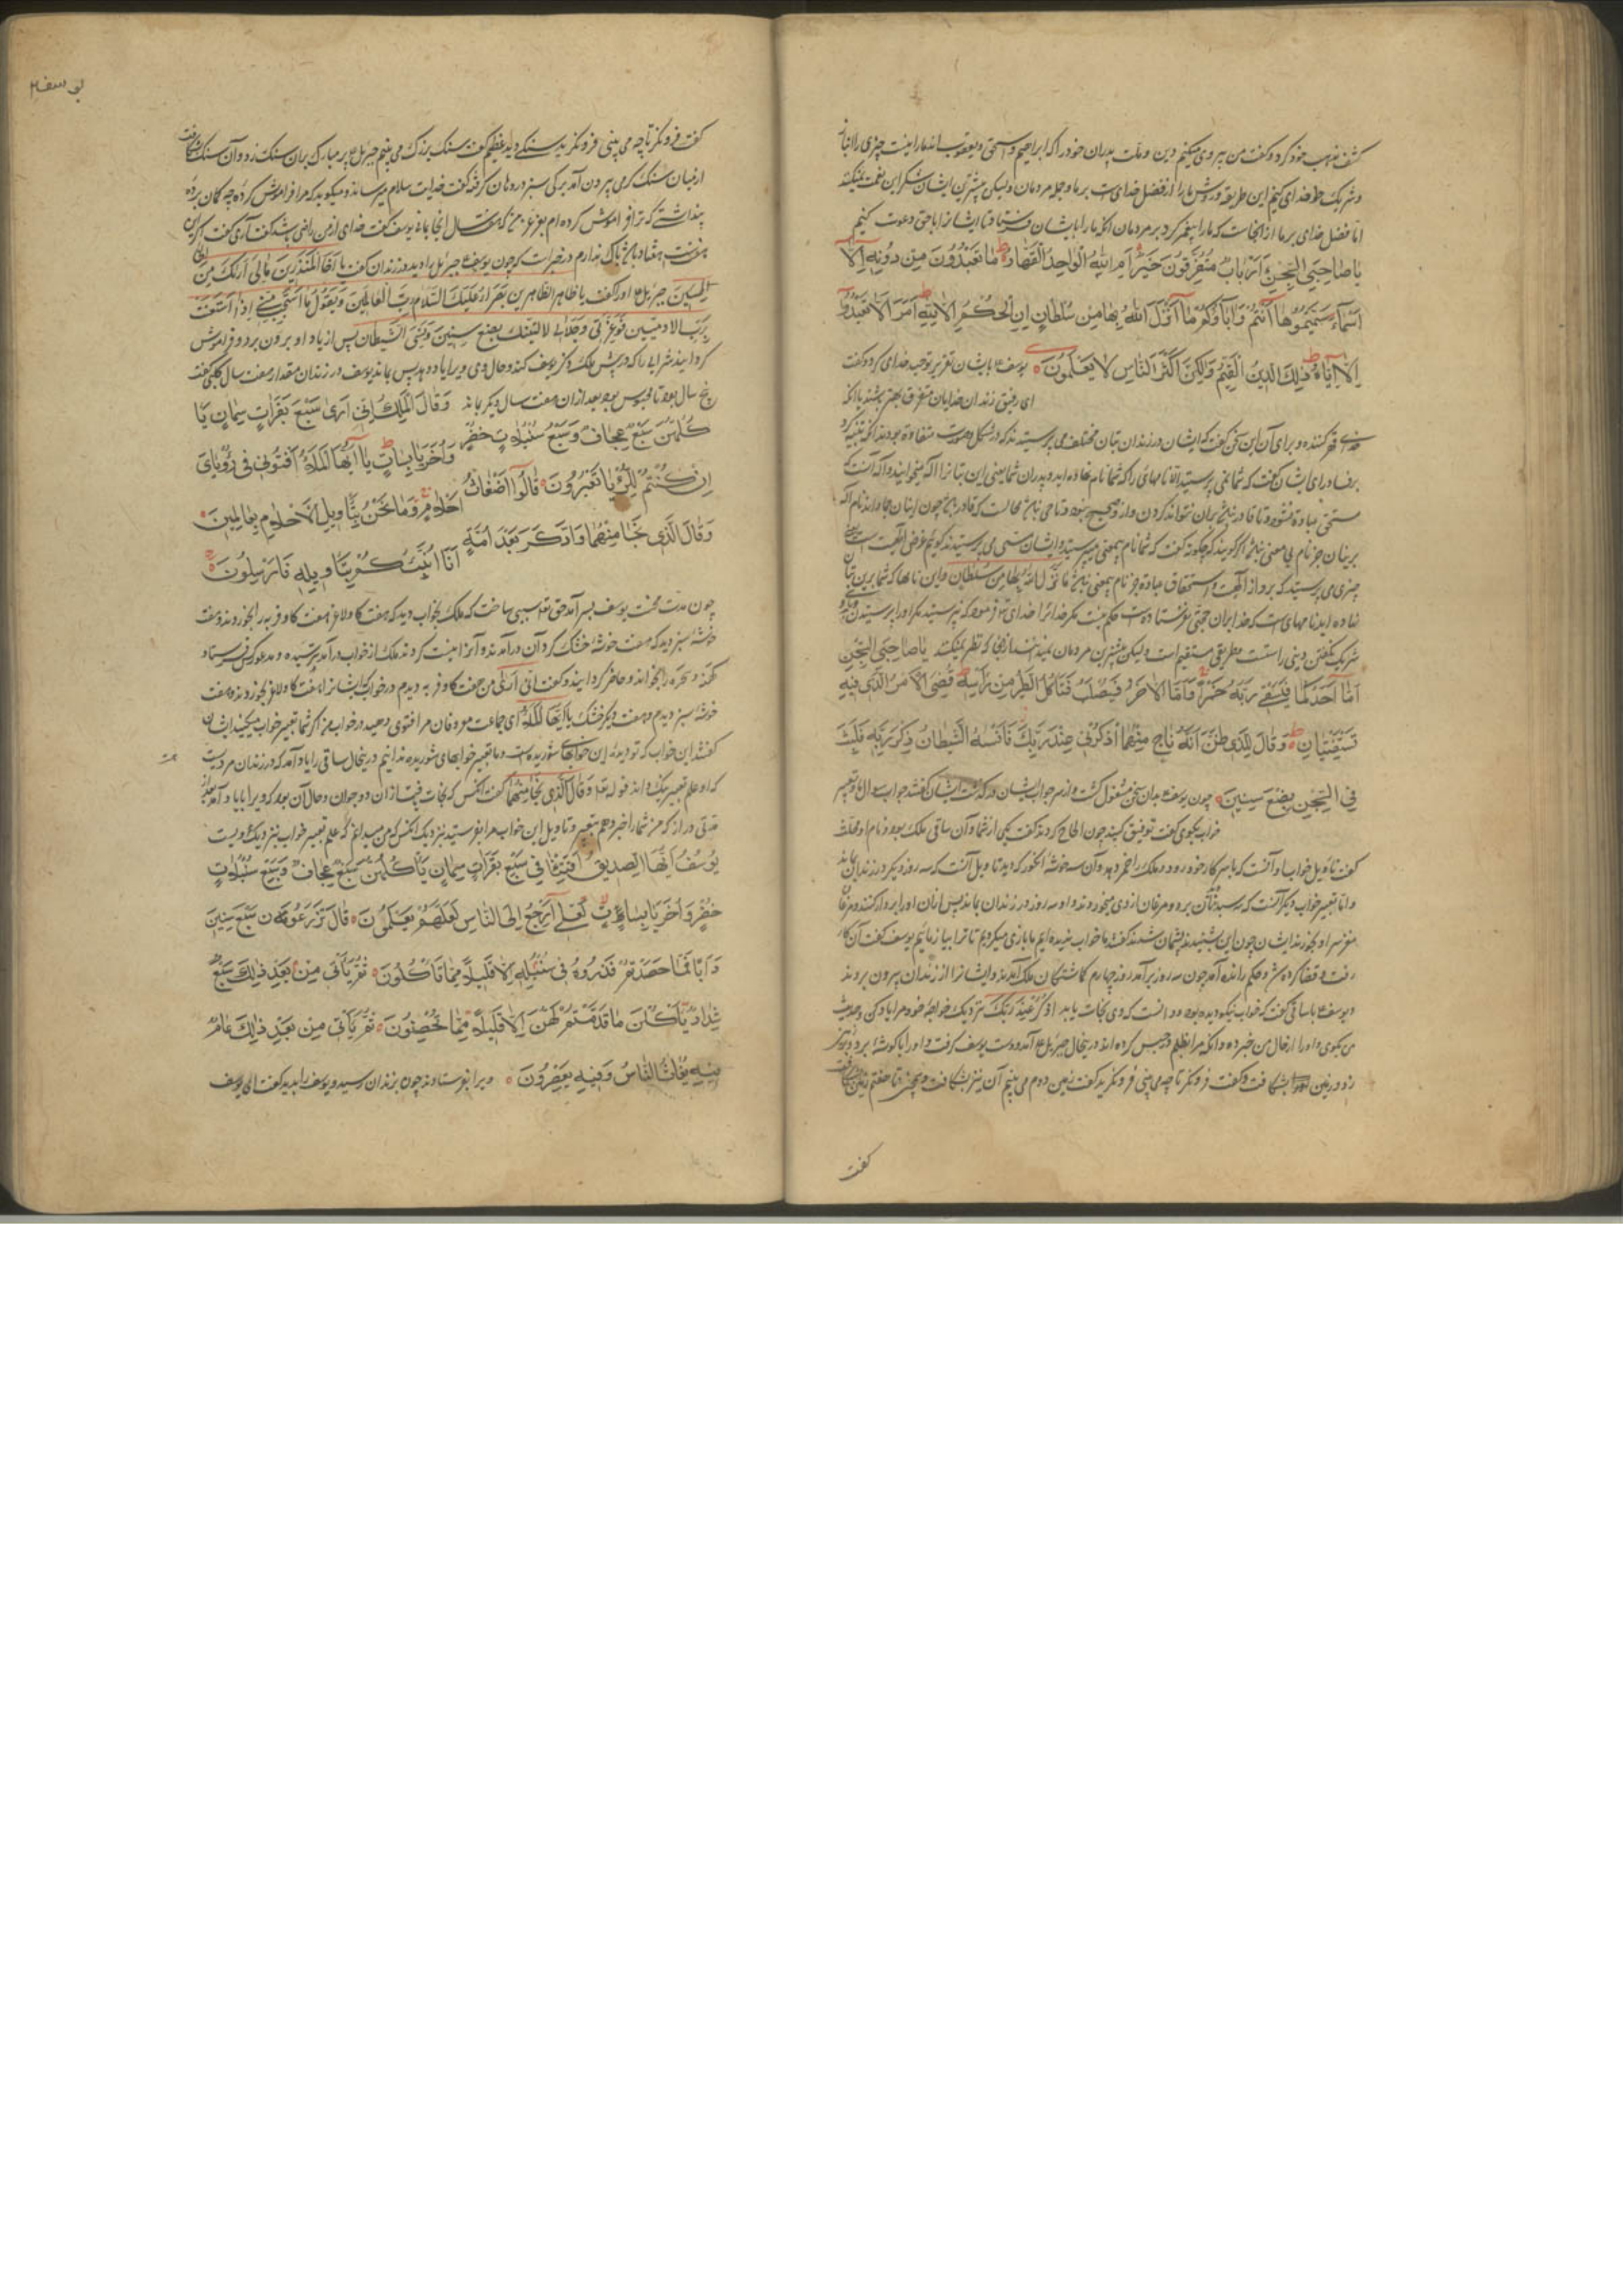 کشف مذهب خود کرد و گفت من پیروی میکنم دین و ملت پدران خود را که ابراهیم و اسحق و یعقوب اند ما را نیست چیزی را انباز
و شریک خدای کنیم این طریقه و روش ما را از فضل خدای است بر ما و جمله مردمان ولیکن بیشترین ایشان شکر این نعمت نمیکنند
اما فضل خدای بر ما از آنجاست که ما را پیغمبر کرد و بر مردمان آنکه ما را بایشان فرستاد تا ایشانرا با حق دعوت کنیم
یَا صَاحِبَیِ السِّجْنِ أَأَرْبَابٌ مُتَفَرِّقُونَ خَیْرٌ أَمِ اللّٰهُ الْوَاحِدُ الْقَهَّارُ مَا تَعْبُدُونَ مِنْ دُونِهِ إِلَّا
أَسْمَاءً سَمَّیْتُمُوهَا أَنْتُمْ وَآبَاؤُکُمْ مَا أَنْزَلَ اللّٰهُ بِهَا مِنْ سُلْطَانٍ إِنِ الْحُکْمُ إِلَّا لِلّٰهِ أَمَرَ أَلَّا تَعْبُدُوا
إِلَّا إِیَّاهُ ذٰلِکَ الدِّینُ الْقَیِّمُ وَلٰکِنَّ أَکْثَرَ النَّاسِ لَا یَعْلَمُونَ یوسف ع بایشان تقریر توحید خدای کرد و گفت
ای رفیق زندان خدایان متفرق بهتر باشند یا آنکه
قهر کننده و برای آن این سخن گفت که ایشان در زندان بتان مختلف می پرستیدند که در شکل و صورت متفاوت بودند
برفساد رای ایشان گفت که شما نمی پرستید الا نامهای را که شما نام نهاده اید و پدران شما یعنی این بتانرا اله میخوانید
مستحق عبادت نشود و تا قادر نباشد بران نتواند کردن
بریشان جز نام بی معنی نباشد اگر گویند که چگونه گفت که شما نام بیمعنی میپرستید و ایشان مسمی می پرستیدند گوئیم
چیزی می پرستید که برو از الهیت و استحقاق عبادت جز نام بیمعنی نباشد مَا أَنْزَلَ اللّٰهُ بِهَا مِنْ سُلْطَانٍ و این نامها که شما برین بتان
نهاده اید نامهای است که خدا بران حجتی نفرستاده است حکم نیست مگر خدایرا خدای تعالی فرموده که نپرستید مگر او را
شریک نگفتن دینی راستست و طریقی مستقیم است ولیکن بیشترین مردمان نمیدانند از آنجا که نظر نمیکنند یَا صَاحِبَیِ السِّجْنِ
أَمَّا أَحَدُکُمَا فَیَسْقِی رَبَّهُ خَمْرًا وَأَمَّا الْآخَرُ فَیُصْلَبُ فَتَأْکُلُ الطَّیْرُ مِنْ رَأْسِهِ قُضِیَ الْأَمْرُ الَّذِی فِیهِ
تَسْتَفْتِیَانِ وَقَالَ لِلَّذِی ظَنَّ أَنَّهُ نَاجٍ مِنْهُمَا اذْکُرْنِی عِنْدَ رَبِّکَ فَأَنْسٰهُ الشَّیْطَانُ ذِکْرَ رَبِّهِ فَلَبِثَ
فِی السِّجْنِ بِضْعَ سِنِینَ چون یوسف ع بدان سخن مشغول گشت و از سر جواب ایشان درگذشت ایشان گفتند جواب سوال ما و تعبیر
خواب بگوی گفت توقف کنید چون الحاح کردند گفت یکی از شما و آن ساقی ملک بود و نام او
گفت تأویل خواب او آنست که با سر کار خود رود و ملک را خمر دهد و آن سه خوشه انگور که دید تاویل آنست که سه روز دیگر در زندان بماند
و اما تعبیر خواب دیگر آنست که سه سبد نان برد و مرغان از وی میخوردند او سه روز در زندان بماند پس ازان او را بر دار کنند و مرغان
مغز سر او بخورند ایشان چون این بشنیدند پشمان شدند گفتند ما خواب ندیده ایم ما بازی میکردیم تا ترا بیازمائیم یوسف گفت آن کار
رفت و قضا کرده شد و حکم رانده آمد چون سه روز برآمد روز چهارم گماشتگان ملک آمدند و ایشانرا از زندان بیرون بردند
و یوسف ع با ساقی گفت که خواب نیکو دیده بود و دانست که وی نجات یابد اذْکُرْنِی عِنْدَ رَبِّکَ نزدیک خواجه خود مرا یاد کن و حدیث
من بگوی و او را از حال من خبر ده و آنکه مرا بظلم در حبس کرده اند در ینحال جبرئیل ع آمد و دست یوسف گرفت و او را با گوشه برد
زد و زمین بشکافت و گفت فرو نگر تا چه می بینی فرو نگرید گفت زمین دوم می بینم آن نیز بشکافت و همچنین تا هفتم زمین
گفت
یوسف
گفت فرو نگر تا چه می بینی فرو نگرید سنگی دید عظیم گفت سنگ بزرگ می بینم جبرئیل ع پر مبارک بران سنگ زد و آن سنگ بشکافت
از میان سنگ کرمی بیرون آمد برگی سبز در دهان گرفته گفت خدایت سلام میرساند و میگوید که مرا فراموش کرده چه گمان برده
پنداشتی که ترا فراموش کرده ام بعزت من که هفت سال اینجا بمانی یوسف گفت خدای از من راضی باشد گفت آری گفت
هفتاد باش باک ندارم در خبرست که چون یوسف ع جبرئیل را دید در زندان گفت یا أَخَا الْمُنْذِرِینَ مَا لِی أَرَاکَ بَیْنَ
جبرئیل ع او را گفت یا طاهر الطاهرین یَقْرَأُ عَلَیْکَ السَّلَامَ رَبُّ الْعَالَمِینَ وَیَقُولُ مَا اسْتَحْیَیْتَ مِنِّی إِذَا اسْتَغَثْتَ
بِرَبِّ الآدمیین فَوَعِزَّتِی وَجَلَالِی لَأُلْبِثَنَّکَ بِضْعَ سِنِینَ شیطان پس از یاد او بیرون برد و فراموش
گردانید شرابی را که در پیش ملک ذکر یوسف کند و حال وی ویرا یاد دهد پس بماند یوسف در زندان مقدار هفت سال کلبی گفت
پنج سال بود تا محبوس بود بعد ازان هفت سال دیگر بماند وَقَالَ الْمَلِکُ إِنِّی أَرٰی سَبْعَ بَقَرَاتٍ سِمَانٍ یَأْ
کُلُهُنَّ سَبْعٌ عِجَافٌ وَسَبْعَ سُنْبُلَاتٍ خُضْرٍ وَأُخَرَ یَابِسَاتٍ یَا أَیُّهَا الْمَلَأُ أَفْتُونِی فِی رُؤْیَایَ
إِنْ کُنْتُمْ لِلرُّؤْیَا تَعْبُرُونَ قَالُوا أَضْغَاثُ أَحْلَامٍ وَمَا نَحْنُ بِتَأْوِیلِ الْأَحْلَامِ بِعَالِمِینَ
وَقَالَ الَّذِی نَجَا مِنْهُمَا وَادَّکَرَ بَعْدَ أُمَّةٍ أَنَا أُنَبِّئُکُمْ بِتَأْوِیلِهِ فَأَرْسِلُونَ
چون مدت محنت یوسف بسر آمد حق تعالی سببی ساخت که ملک بخواب دید که هفت گاو لاغر هفت گاو فربه را بخوردند و هفت
خوشه سبز دید که هفت خوشه خشک گرد آن درآمدند و آنرا نیست کردند ملک از خواب درآمد ترسیده
کهنه و سحره را بخواند و حاضر گردانید و گفت إِنِّی أَرٰی من هفت گاو فربه دیدم در خواب که ایشانرا هفت گاو لاغر بخوردند و هفت
خوشه سبز دیدم و هفت دیگر خشک یا أَیُّهَا الْمَلَأُ ای جماعت معروفان مرا فتوی دهید در خواب من اگر شما تعبیر خواب میکنید ایشان
گفتند این خواب که تو دیده این خوابهای شوریده است و ما تعبیر خوابهای شوریده ندانیم در ینحال ساقی را یاد آمد که در زندان مردیست
که او علم تعبیر نیک داند قوله تعالی وَقَالَ الَّذِی نَجَا مِنْهُمَا گفت آنکس که نجات یافت از ان دو جوان و حال آن بود که ویرا یاد آمد بعد
مدتی دراز که من شما را خبر دهم بتعبیر و تاویل این خواب مرا بفرستید بنزدیک آنکس که من میدانم که علم تعبیر خواب بنزدیک ویست
یُوسُفُ أَیُّهَا الصِّدِّیقُ أَفْتِنَا فِی سَبْعِ بَقَرَاتٍ سِمَانٍ یَأْکُلُهُنَّ سَبْعٌ عِجَافٌ وَسَبْعِ سُنْبُلَاتٍ
خُضْرٍ وَأُخَرَ یَابِسَاتٍ لَعَلِّی أَرْجِعُ إِلَی النَّاسِ لَعَلَّهُمْ یَعْلَمُونَ قَالَ تَزْرَعُونَ سَبْعَ سِنِینَ
دَأَبًا فَمَا حَصَدْتُمْ فَذَرُوهُ فِی سُنْبُلِهِ إِلَّا قَلِیلًا مِمَّا تَأْکُلُونَ ثُمَّ یَأْتِی مِنْ بَعْدِ ذٰلِکَ سَبْعٌ
شِدَادٌ یَأْکُلْنَ مَا قَدَّمْتُمْ لَهُنَّ إِلَّا قَلِیلًا مِمَّا تُحْصِنُونَ ثُمَّ یَأْتِی مِنْ بَعْدِ ذٰلِکَ عَامٌ
فِیهِ یُغَاثُ النَّاسُ وَفِیهِ یَعْصِرُونَ ویرا بفرستادند چون بزندان رسید و یوسف را بدید گفت ای یوسف